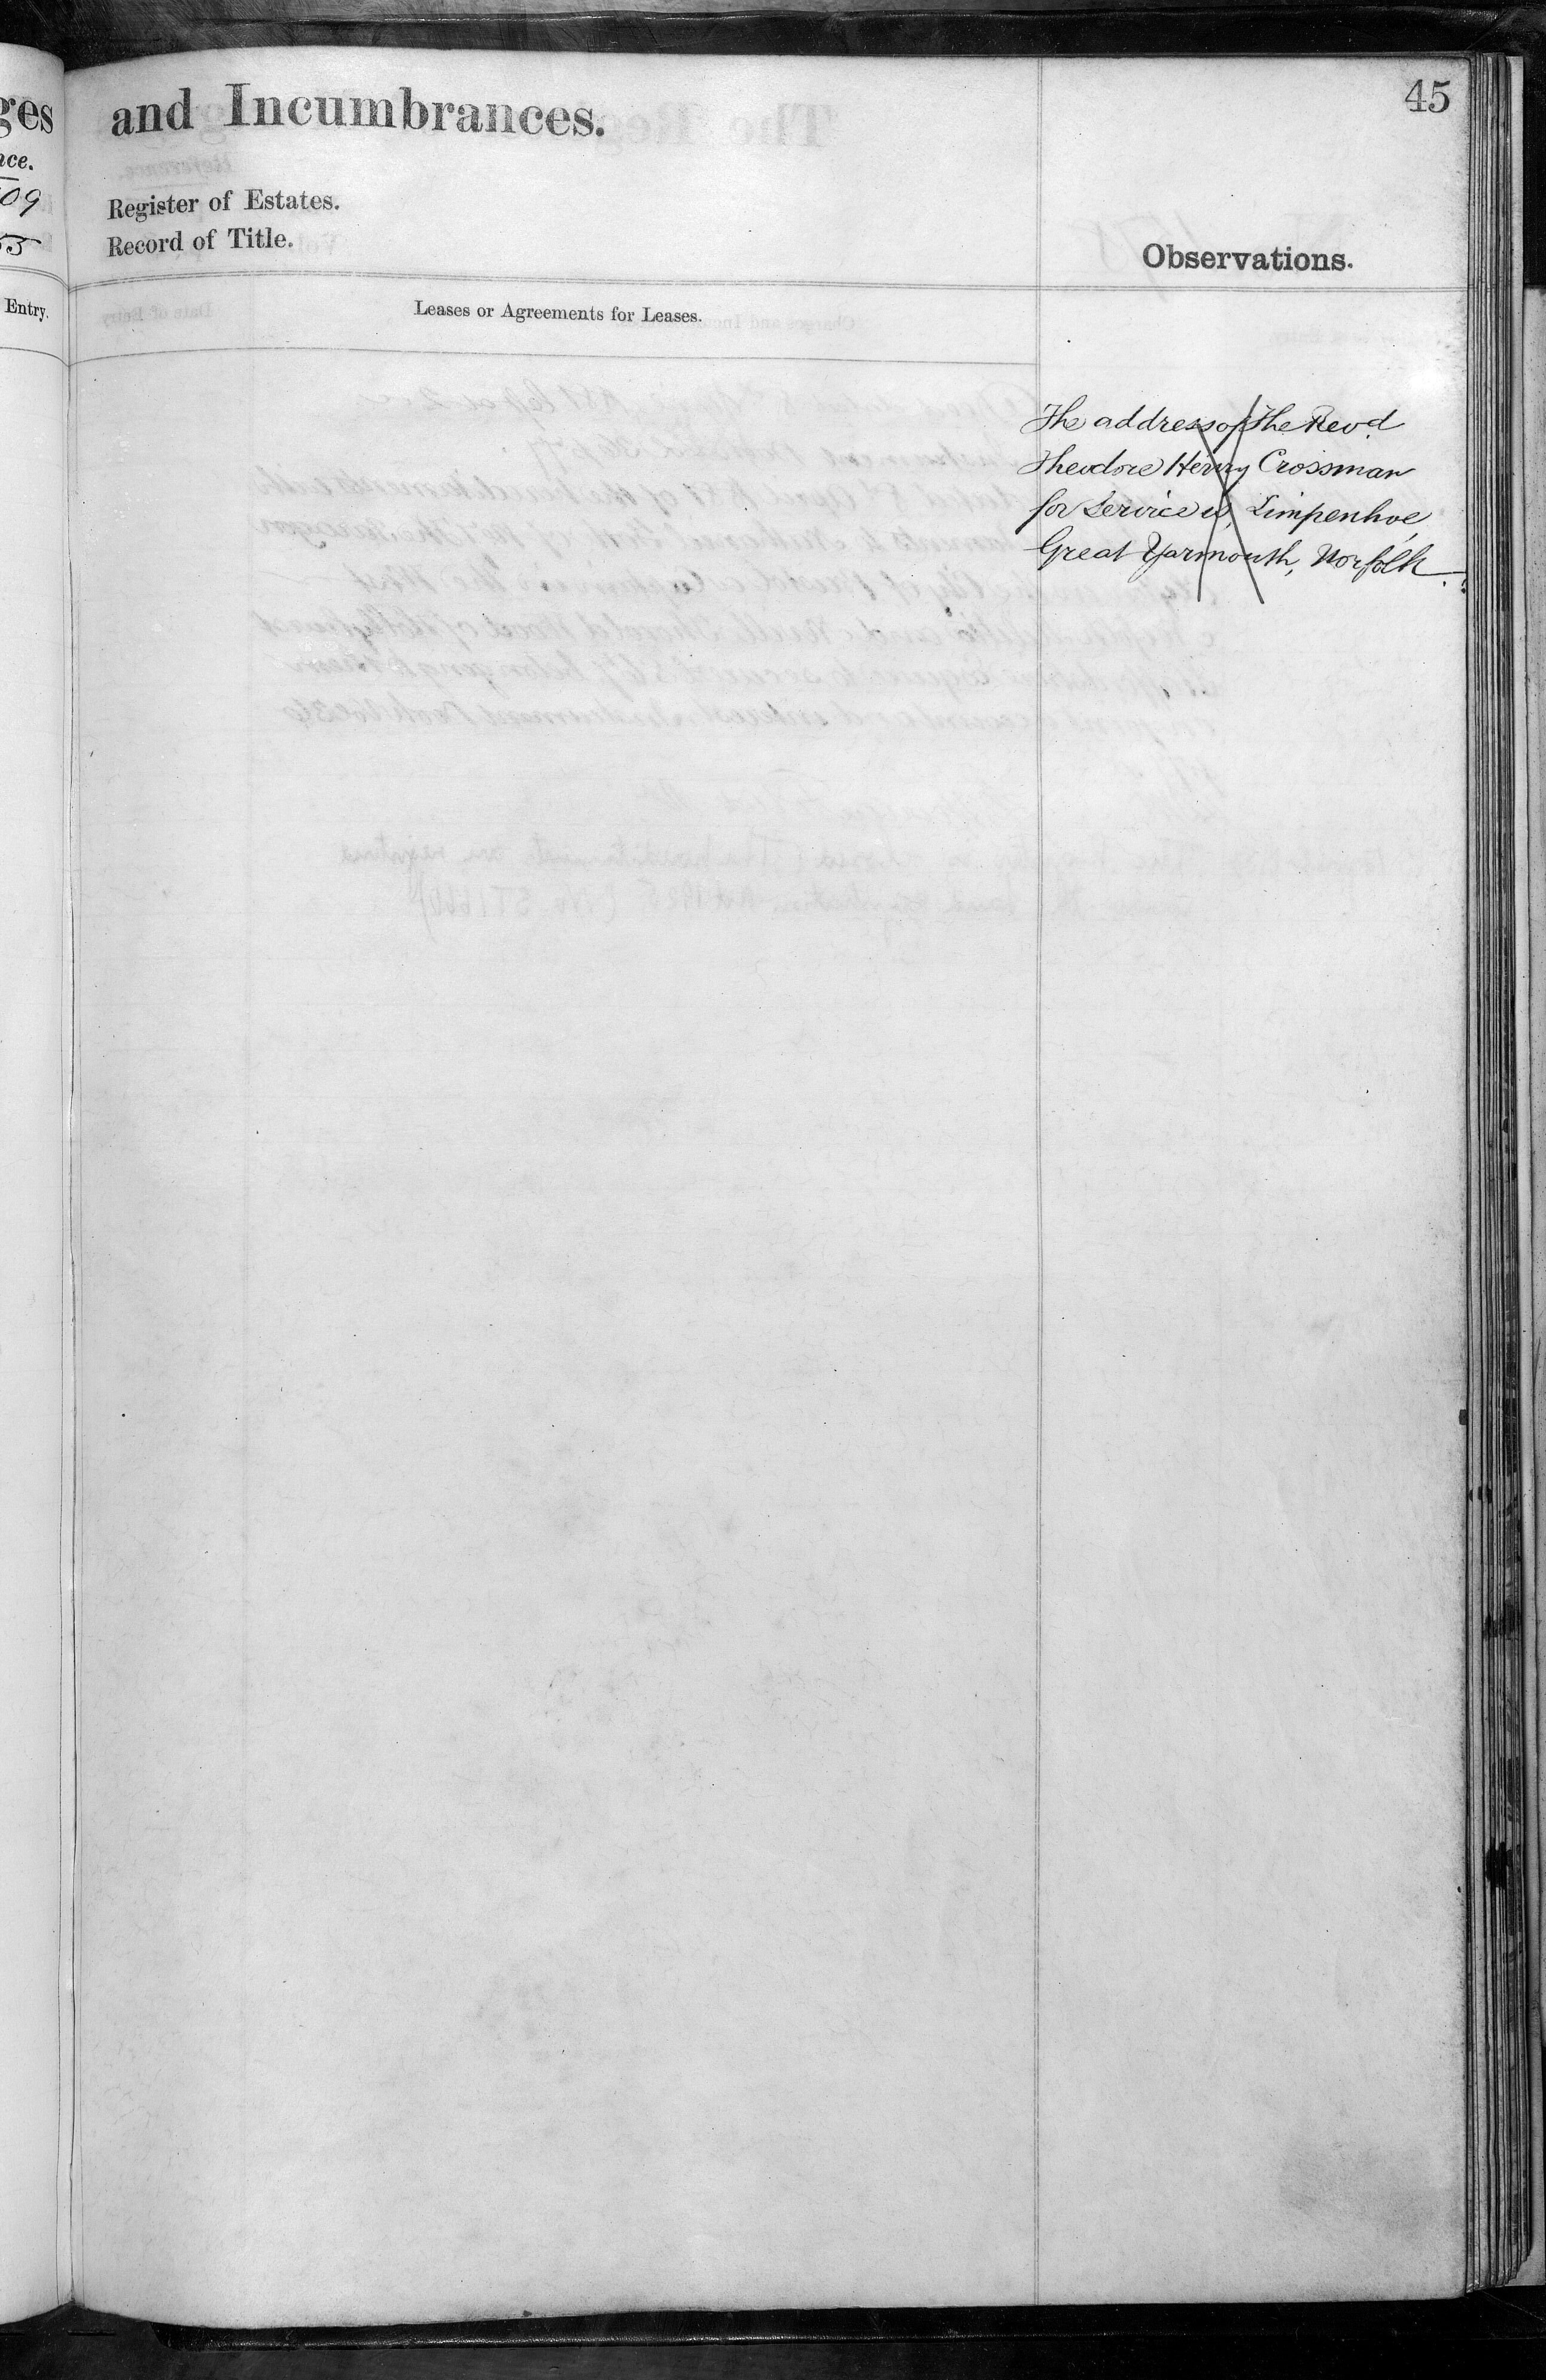 45
ges
and Incumbrances.
nce.
09
Register of Estates.
Record of Title.
Observations.
Entry.
Leases or Agreements for Leases.
The address of the Revd
Theodore Henry Crossman
for Service is, Limpenhoe,
Great Yarmouth, Norfolk.